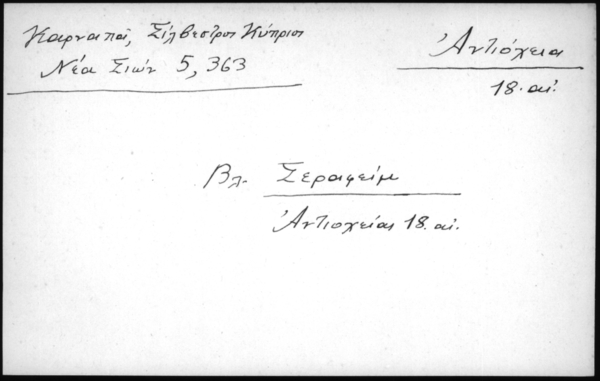 Καρναπᾶ, Σίλβεστρος Κύπριος
Νέα Σιών 5, 363
Ἀντιόχεια
18. αἰ.
Βλ. Σεραφείμ
Ἀντιοχείας 18. αἰ.